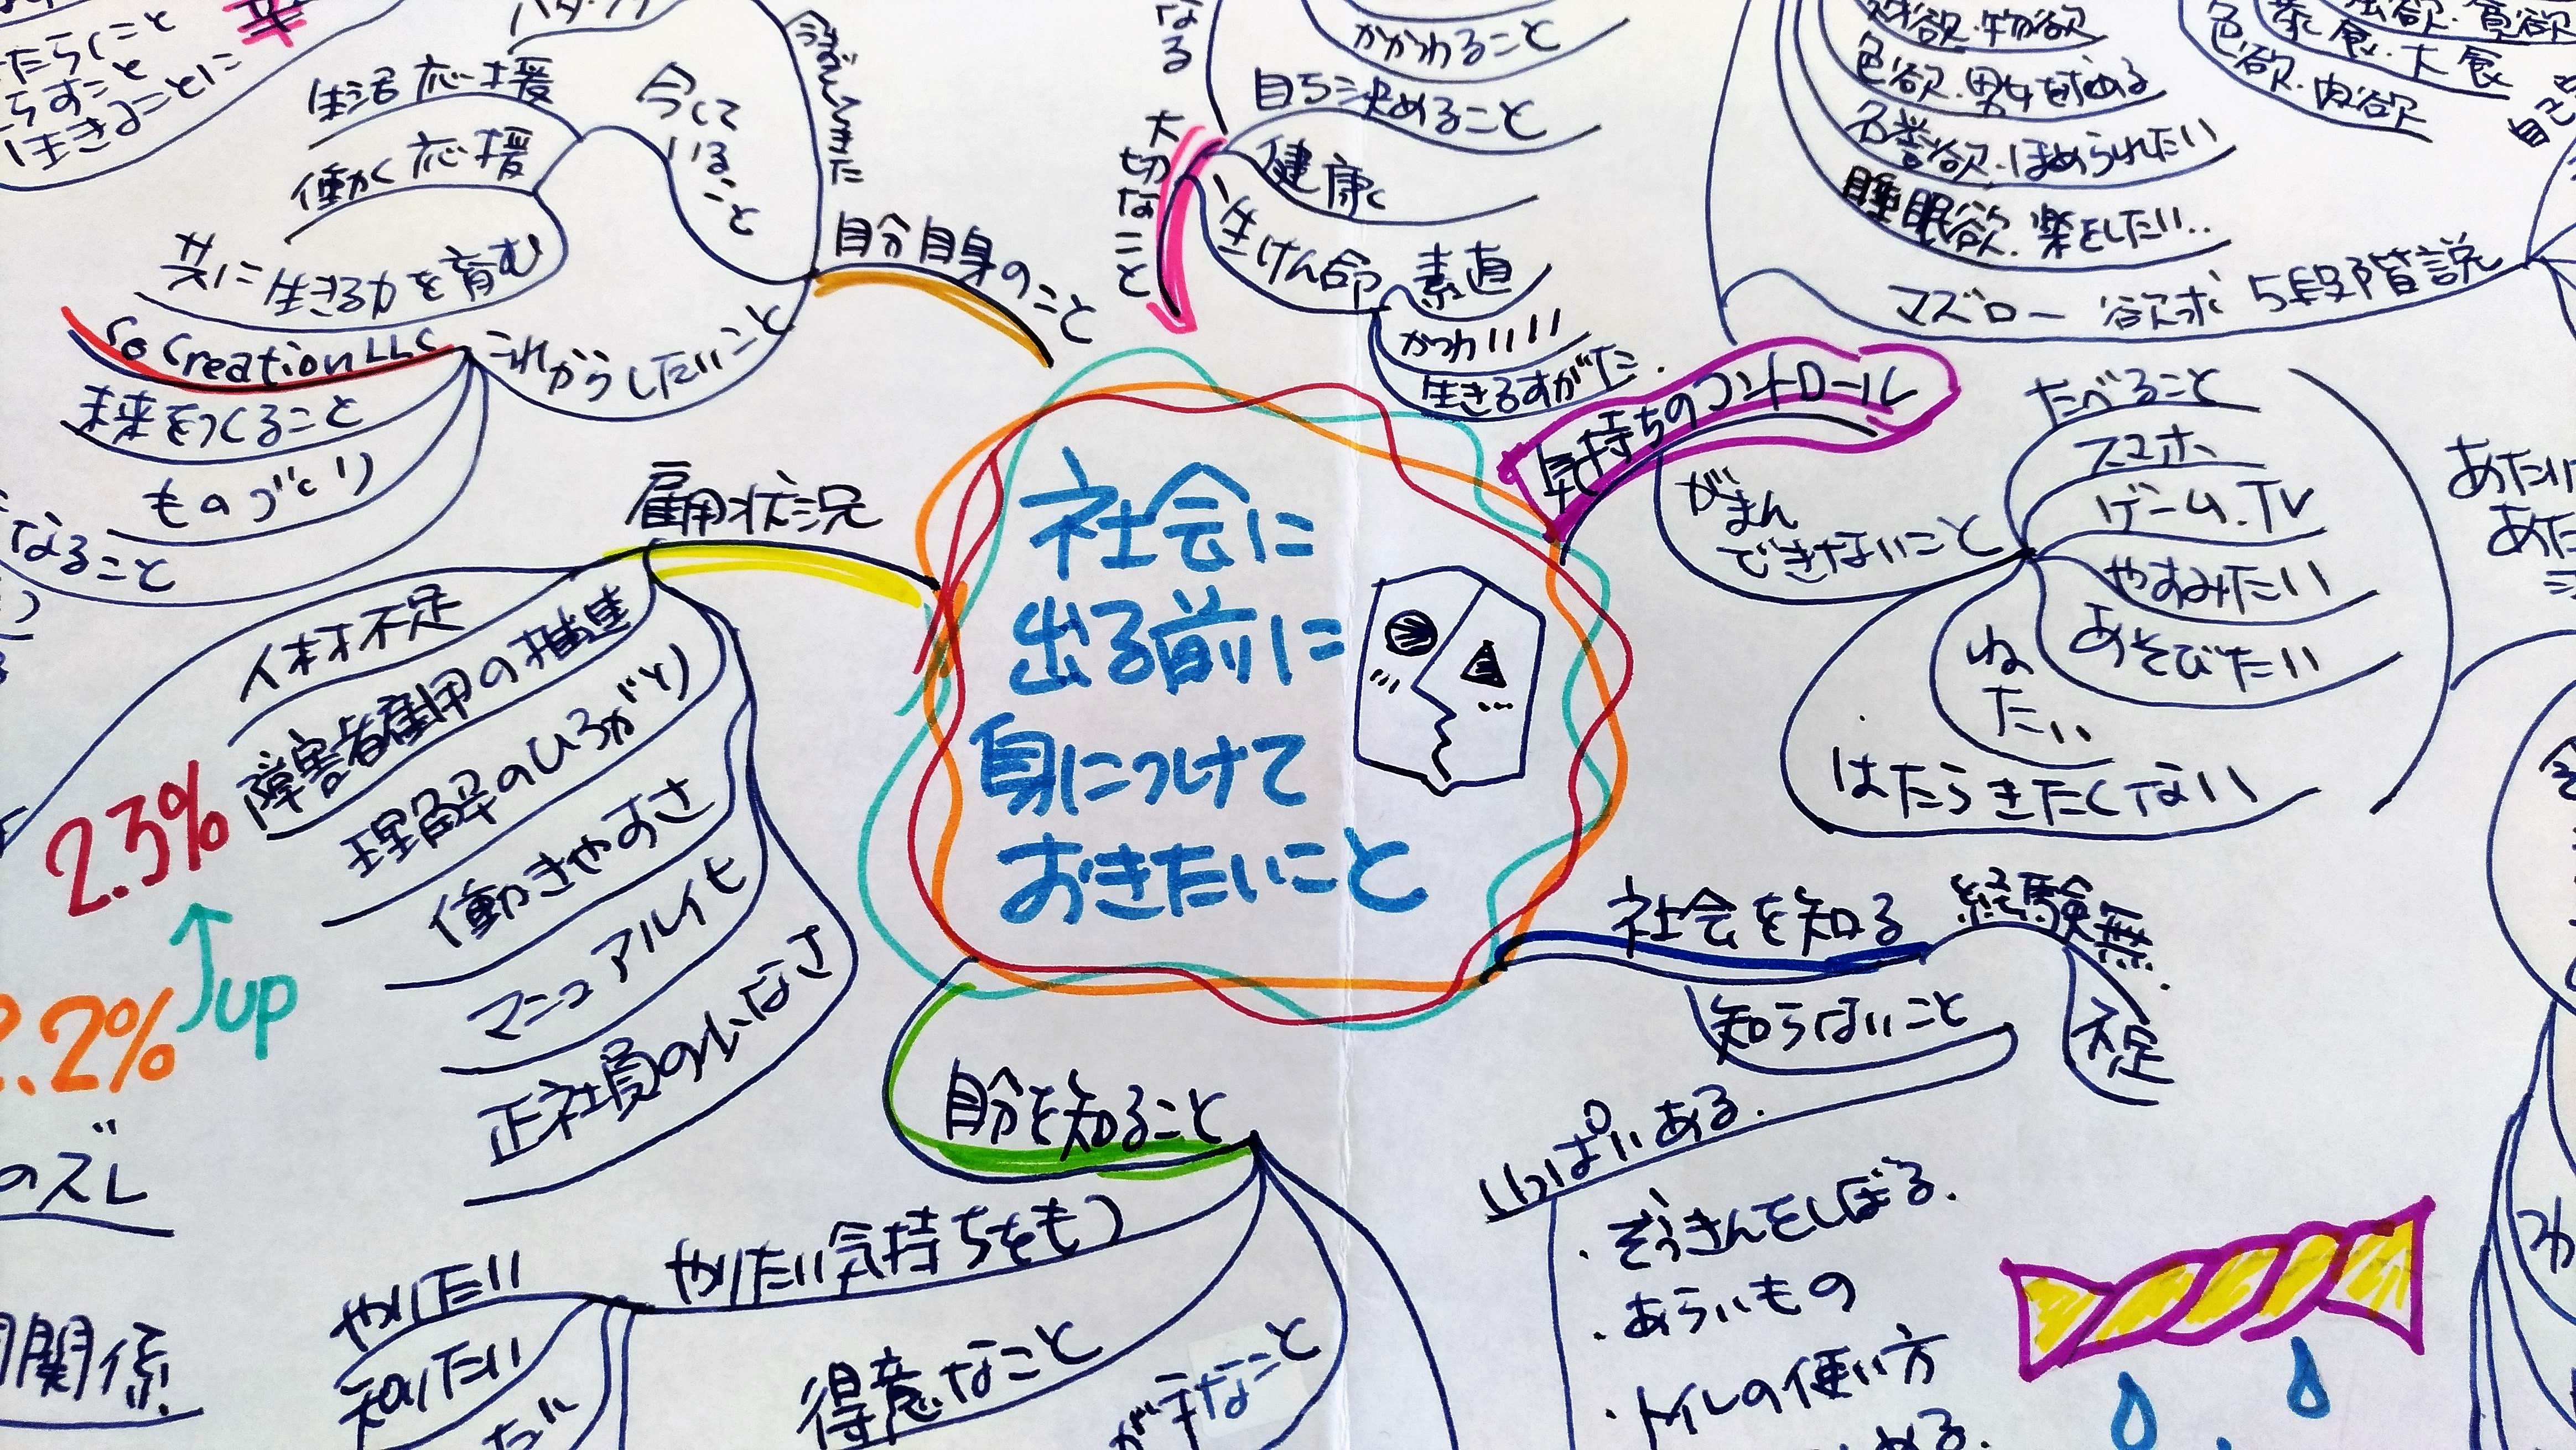 たらくこと
らすこと
生きることに
幸
生活応援
働く応援
共に生きる力を育む
今して
いる
こと
自分自身のこと
これからしたいこと
So Creation LLC
未来をつくること
ものづくり
なること
なる
大切なこと
かかわること
自ら決めること
健康
生けん命
素直
かわいい
生きるすがた.
色欲.男女を求める
名誉欲.ほめられたい
睡眠欲.楽をしたい..
マズロー 欲求 5段階説
暴食.大食
色欲.肉欲
気持ちのコントロール
がまん
できないこと
たべること
スマホ
ゲーム.TV
やすみたい
あそびたい
ねたい
はたらきたくない
雇用状況
人材不足
障害者雇用の推進
理解のひろがり
働きやすさ
マニュアル化
正社員の少なさ
2.3%
up
2.2%
のズレ
関係.
社会に
出る前に
身につけて
おきたいこと
社会を知る
経験無.
不足
知らないこと
いっぱいある.
・ぞうきんをしぼる.
・あらいもの
・トイレの使い方
自分を知ること
やりたい気持ちをもつ
やりたい
知りたい
得意なこと
が手なこと